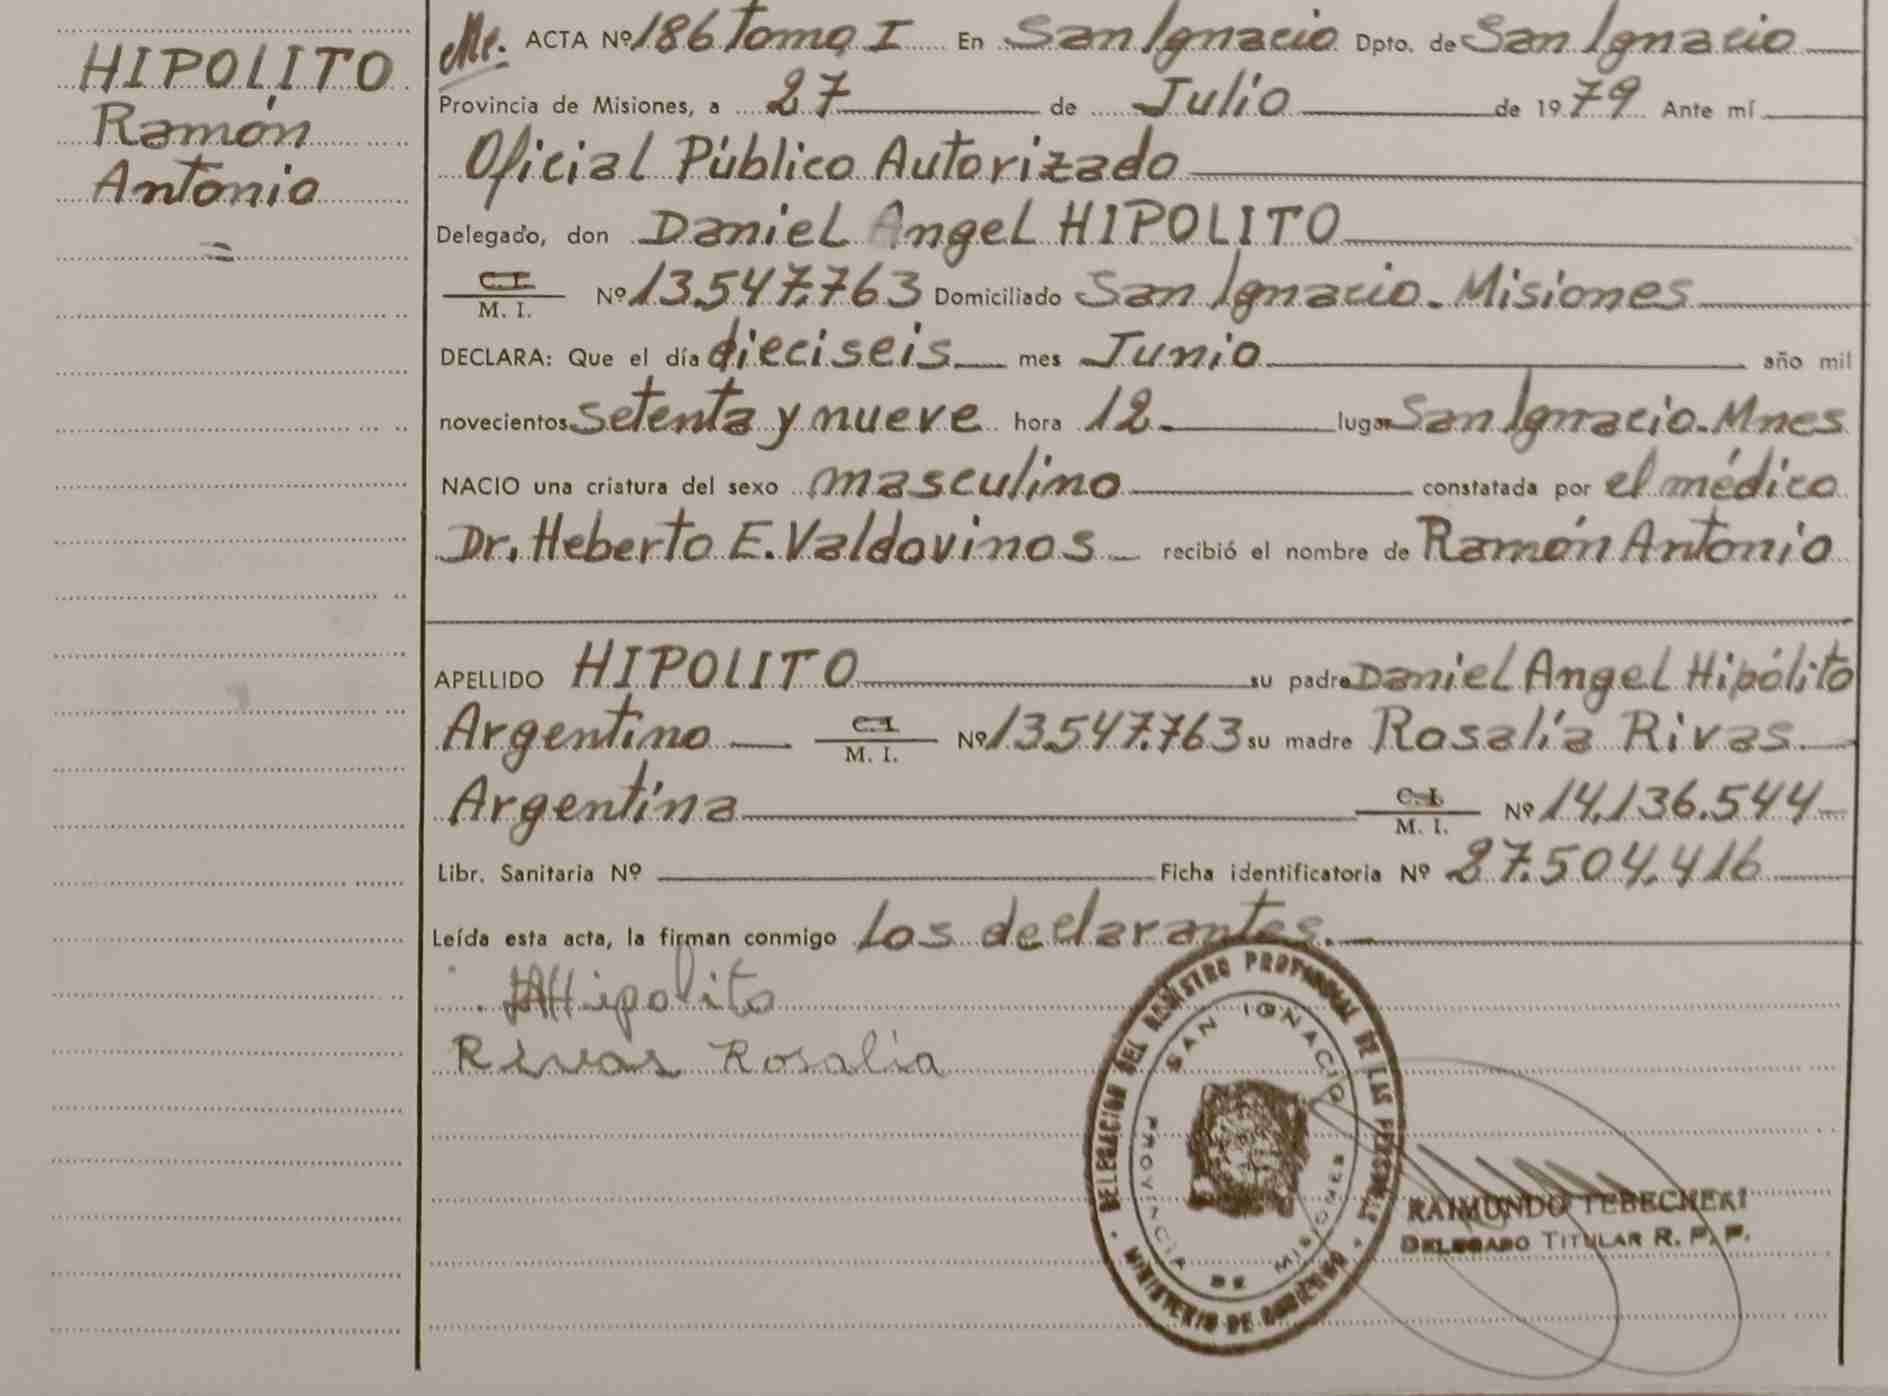 HIPOLITO
Ramón
Antonio
=
ACTA Nº 186 Tomo I En San Ignacio Dpto. de San Ignacio
Provincia de Misiones, a 27 de Julio de 1979 Ante mí
Oficial Público Autorizado
Delegado, don Daniel Angel HIPOLITO
C. I.
M. I. Nº 13.547.763 Domiciliado San Ignacio. Misiones
DECLARA: Que el día dieciseis mes Junio año mil
novecientos setenta y nueve hora 12 lugar San Ignacio. Mnes
NACIO una criatura del sexo masculino constatada por el médico
Dr. Heberto E. Valdovinos recibió el nombre de Ramón Antonio
APELLIDO HIPOLITO su padre Daniel Angel Hipólito
Argentino C. I.
M. I. Nº 13.547.763 su madre Rosalía Rivas
Argentina C. I.
M. I. Nº 14.136.544
Libr. Sanitaria Nº Ficha identificatoria Nº 27.504.416
Leída esta acta, la firman conmigo los declarantes.
Hipolito
Rivas Rosalía
DELEGACION DEL REGISTRO PROVINCIAL DE LAS PERSONAS
SAN IGNACIO
PROVINCIA DE MISIONES
MINISTERIO DE GOBIERNO
RAIMUNDO TEBECHERI
DELEGADO TITULAR R. P. P.